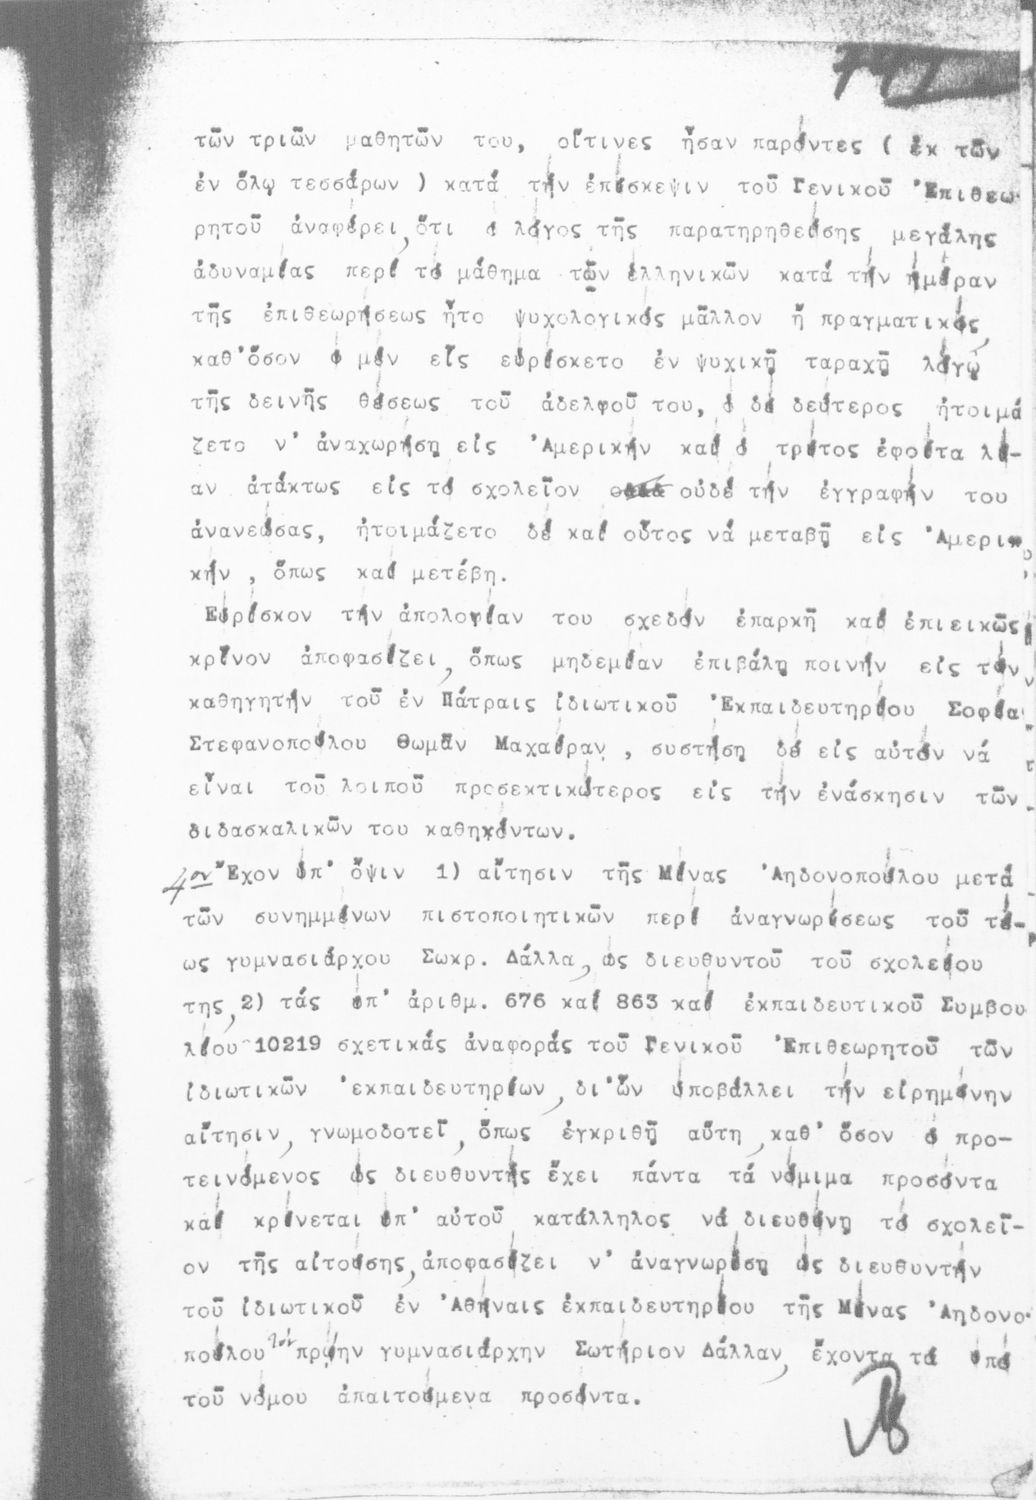 τῶν τριῶν μαθητῶν του, οἵτινες ἦσαν παρόντες ( ἐκ τῶν
ἐν ὅλῳ τεσσάρων ) κατά τήν ἐπίσκεψιν τοῦ Γενικοῦ Ἐπιθεω-
ρητοῦ ἀναφέρει, ὅτι ὁ λόγος τῆς παρατηρηθείσης μεγάλης
ἀδυναμίας περί τό μάθημα τῶν ἑλληνικῶν κατά τήν ἡμέραν
τῆς ἐπιθεωρήσεως ἦτο ψυχολογικός μᾶλλον ἤ πραγματικός,
καθ'ὅσον ὁ μέν εἷς εὑρίσκετο ἐν ψυχικῇ ταραχῇ λόγῳ
τῆς δεινῆς θέσεως τοῦ ἀδελφοῦ του, ὁ δέ δεύτερος ἡτοιμά
ζετο ν' ἀναχωρήσῃ εἰς Ἀμερικήν καί ὁ τρίτος ἐφοίτα λί-
αν ἀτάκτως εἰς τό σχολεῖον οὐδέ τήν ἐγγραφήν του
ἀνανεώσας, ἡτοιμάζετο δέ καί οὗτος νά μεταβῇ εἰς Ἀμερι
κήν , ὅπως καί μετέβη.
Εὑρίσκον τήν ἀπολογίαν του σχεδόν ἐπαρκῆ καί ἐπιεικῶς
κρῖνον ἀποφασίζει, ὅπως μηδεμίαν ἐπιβάλῃ ποινήν εἰς τόν
καθηγητήν τοῦ ἐν Πάτραις ἰδιωτικοῦ Ἐκπαιδευτηρίου Σοφία
Στεφανοπούλου Θωμᾶν Μαχαίραν , συστήσῃ δέ εἰς αὐτόν νά
εἶναι τοῦ λοιποῦ προσεκτικώτερος εἰς τήν ἐνάσκησιν τῶν
διδασκαλικῶν του καθηκόντων.
4ον Ἔχον ὑπ' ὄψιν 1) αἴτησιν τῆς Μίνας Ἀηδονοπούλου μετά
τῶν συνημμένων πιστοποιητικῶν περί ἀναγνωρίσεως τοῦ τέ-
ως γυμνασιάρχου Σωκρ. Δάλλα, ὡς διευθυντοῦ τοῦ σχολείου
της, 2) τάς ὑπ' ἀριθμ. 676 καί 863 καί ἐκπαιδευτικοῦ Συμβου
λίου 10219 σχετικάς ἀναφοράς τοῦ Γενικοῦ Ἐπιθεωρητοῦ τῶν
ἰδιωτικῶν ἐκπαιδευτηρίων, δι'ὧν ὑποβάλλει τήν εἰρημένην
αἴτησιν, γνωμοδοτεῖ, ὅπως ἐγκριθῇ αὕτη, καθ' ὅσον ὁ προ-
τεινόμενος ὡς διευθυντής ἔχει πάντα τά νόμιμα προσόντα
καί κρίνεται ὑπ' αὐτοῦ κατάλληλος νά διευθύνῃ τό σχολεῖ-
ον τῆς αἰτούσης, ἀποφασίζει ν' ἀναγνωρίσῃ ὡς διευθυντήν
τοῦ ἰδιωτικοῦ ἐν Ἀθήναις ἐκπαιδευτηρίου τῆς Μίνας Ἀηδονο-
πούλου τόν πρώην γυμνασιάρχην Σωτήριον Δάλλαν, ἔχοντα τά ὑπό
τοῦ νόμου ἀπαιτούμενα προσόντα.